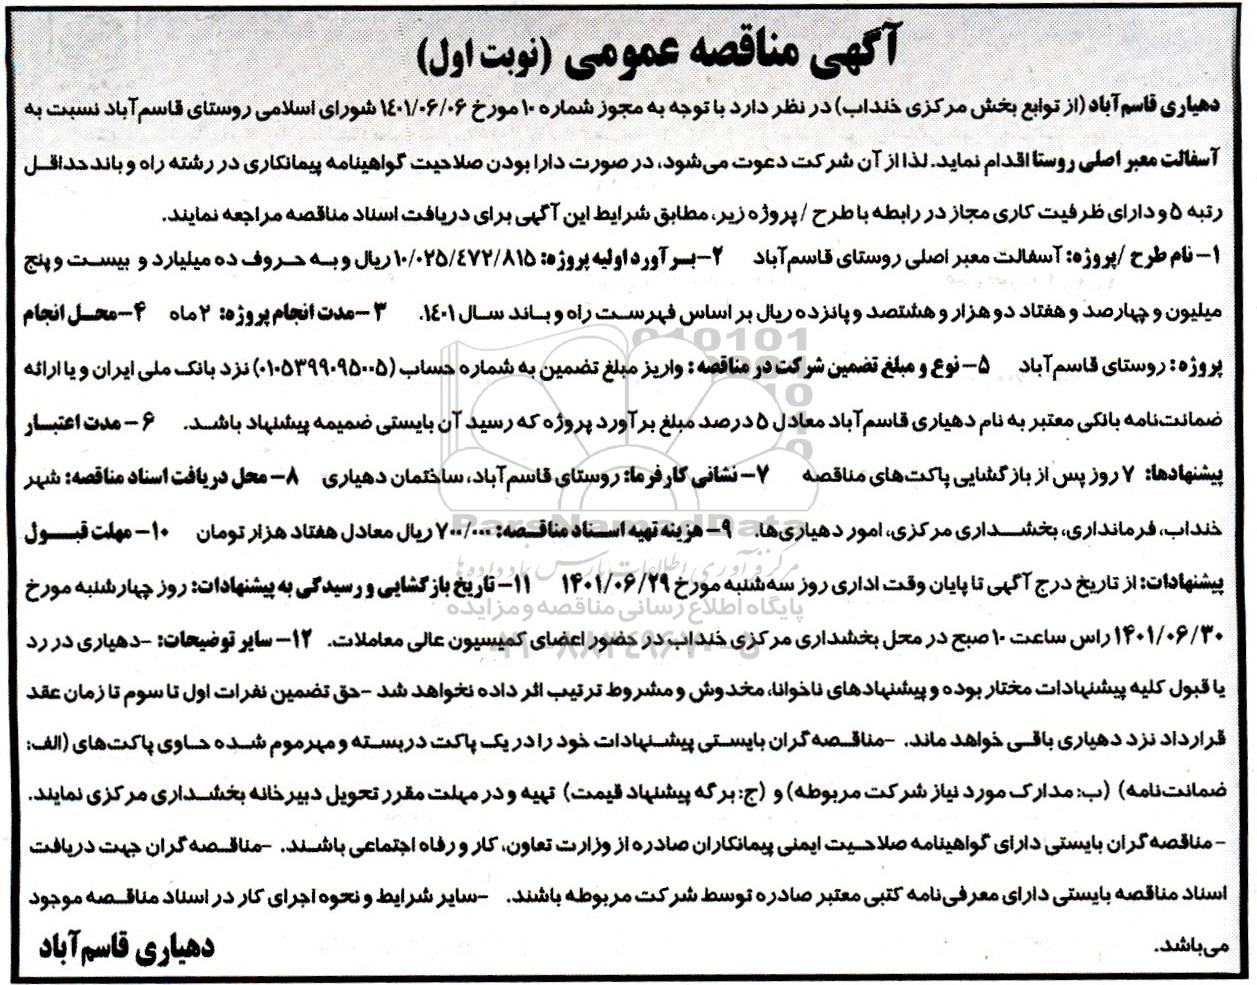 آگهی مناقصه عمومی (نوبت اول)
دهیاری قاسم‌آباد (از توابع بخش مرکزی خنداب) در نظر دارد با توجه به مجوز شماره ۱۰ مورخ ۱۴۰۱/۰۶/۰۶ شورای اسلامی روستای قاسم‌آباد نسبت به
آسفالت معبر اصلی روستا اقدام نماید. لذا از آن شرکت دعوت می‌شود، در صورت دارا بودن صلاحیت گواهینامه پیمانکاری در رشته راه و باند حداقل
رتبه ۵ و دارای ظرفیت کاری مجاز در رابطه با طرح / پروژه زیر، مطابق شرایط این آگهی برای دریافت اسناد مناقصه مراجعه نمایند.
۱- نام طرح /پروژه: آسفالت معبر اصلی روستای قاسم‌آباد ۲- برآورد اولیه پروژه: ۱۰/۰۲۵/۴۷۲/۸۱۵ ریال و به حروف ده میلیارد و بیست و پنج
میلیون و چهارصد و هفتاد دو هزار و هشتصد و پانزده ریال بر اساس فهرست راه و باند سال ۱۴۰۱. ۳- مدت انجام پروژه: ۲ ماه ۴- محل انجام
پروژه: روستای قاسم‌آباد ۵- نوع و مبلغ تضمین شرکت در مناقصه: واریز مبلغ تضمین به شماره حساب (۰۱۰۵۳۹۹۰۹۵۰۰۵) نزد بانک ملی ایران و یا ارائه
ضمانت‌نامه بانکی معتبر به نام دهیاری قاسم‌آباد معادل ۵ درصد مبلغ برآورد پروژه که رسید آن بایستی ضمیمه پیشنهاد باشد. ۶- مدت اعتبار
پیشنهادها: ۷ روز پس از بازگشایی پاکت‌های مناقصه ۷- نشانی کارفرما: روستای قاسم‌آباد، ساختمان دهیاری ۸- محل دریافت اسناد مناقصه: شهر
خنداب، فرمانداری، بخشداری مرکزی، امور دهیاری‌ها. ۹- هزینه تهیه اسناد مناقصه: ۷۰۰/۰۰۰ ریال معادل هفتاد هزار تومان ۱۰- مهلت قبول
پیشنهادات: از تاریخ درج آگهی تا پایان وقت اداری روز سه‌شنبه مورخ ۱۴۰۱/۰۶/۲۹ ۱۱- تاریخ بازگشایی و رسیدگی به پیشنهادات: روز چهارشنبه مورخ
۱۴۰۱/۰۶/۳۰ راس ساعت ۱۰ صبح در محل بخشداری مرکزی خنداب در حضور اعضای کمیسیون عالی معاملات. ۱۲- سایر توضیحات: -دهیاری در رد
یا قبول کلیه پیشنهادات مختار بوده و پیشنهادهای ناخوانا، مخدوش و مشروط ترتیب اثر داده نخواهد شد -حق تضمین نفرات اول تا سوم تا زمان عقد
قرارداد نزد دهیاری باقی خواهد ماند. -مناقصه‌گران بایستی پیشنهادات خود را در یک پاکت دربسته و مهرموم شده حاوی پاکت‌های (الف:
ضمانت‌نامه) (ب: مدارک مورد نیاز شرکت مربوطه) و (ج: برگه پیشنهاد قیمت) تهیه و در مهلت مقرر تحویل دبیرخانه بخشداری مرکزی نمایند.
-مناقصه‌گران بایستی دارای گواهینامه صلاحیت ایمنی پیمانکاران صادره از وزارت تعاون، کار و رفاه اجتماعی باشند. -مناقصه‌گران جهت دریافت
اسناد مناقصه بایستی دارای معرفی‌نامه کتبی معتبر صادره توسط شرکت مربوطه باشند. -سایر شرایط و نحوه اجرای کار در اسناد مناقصه موجود
می‌باشد.
دهیاری قاسم‌آباد
ParsNamadData
مرکز فرآوری اطلاعات پارس نماد داده‌ها
پایگاه اطلاع رسانی مناقصه و مزایده